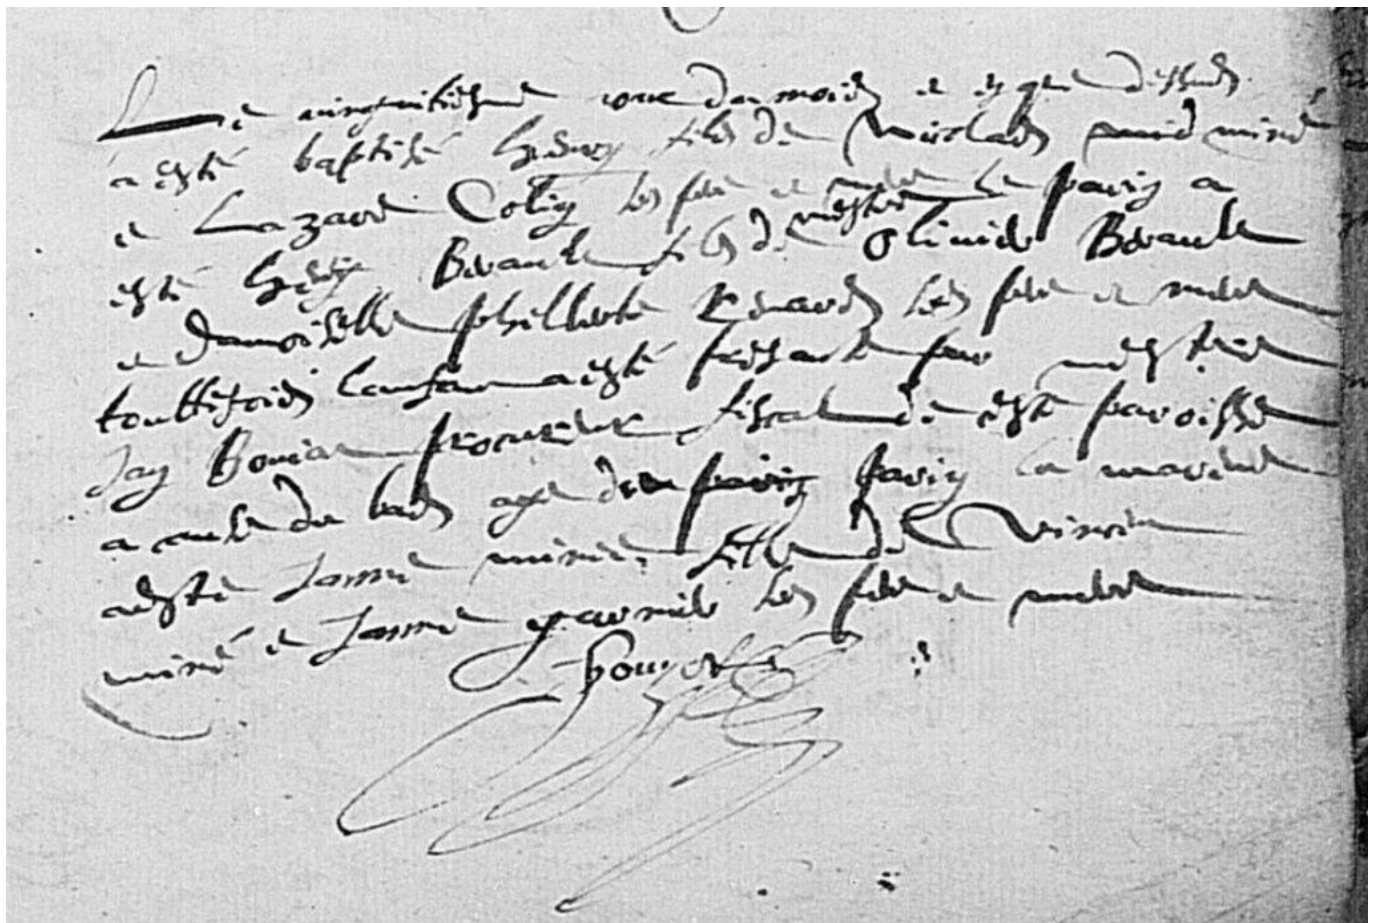 Le vingtuitiesme jour du mois et an que dessus
a esté baptisé henry fils de nicolas miné
et Lazare Colin ses pere et mere le parin a
esté henry Berault fils de mestre Olivier Berault
et damoiselle philleberte Renard ses pere et mere
touttefois lenfan a esté presanté par mestre
Jan procureur fiscal de ceste paroisse
a cause du bas age du parin la marene
a esté Janne minée fille de Vincen
miné et Janne garnier ses pere et mere